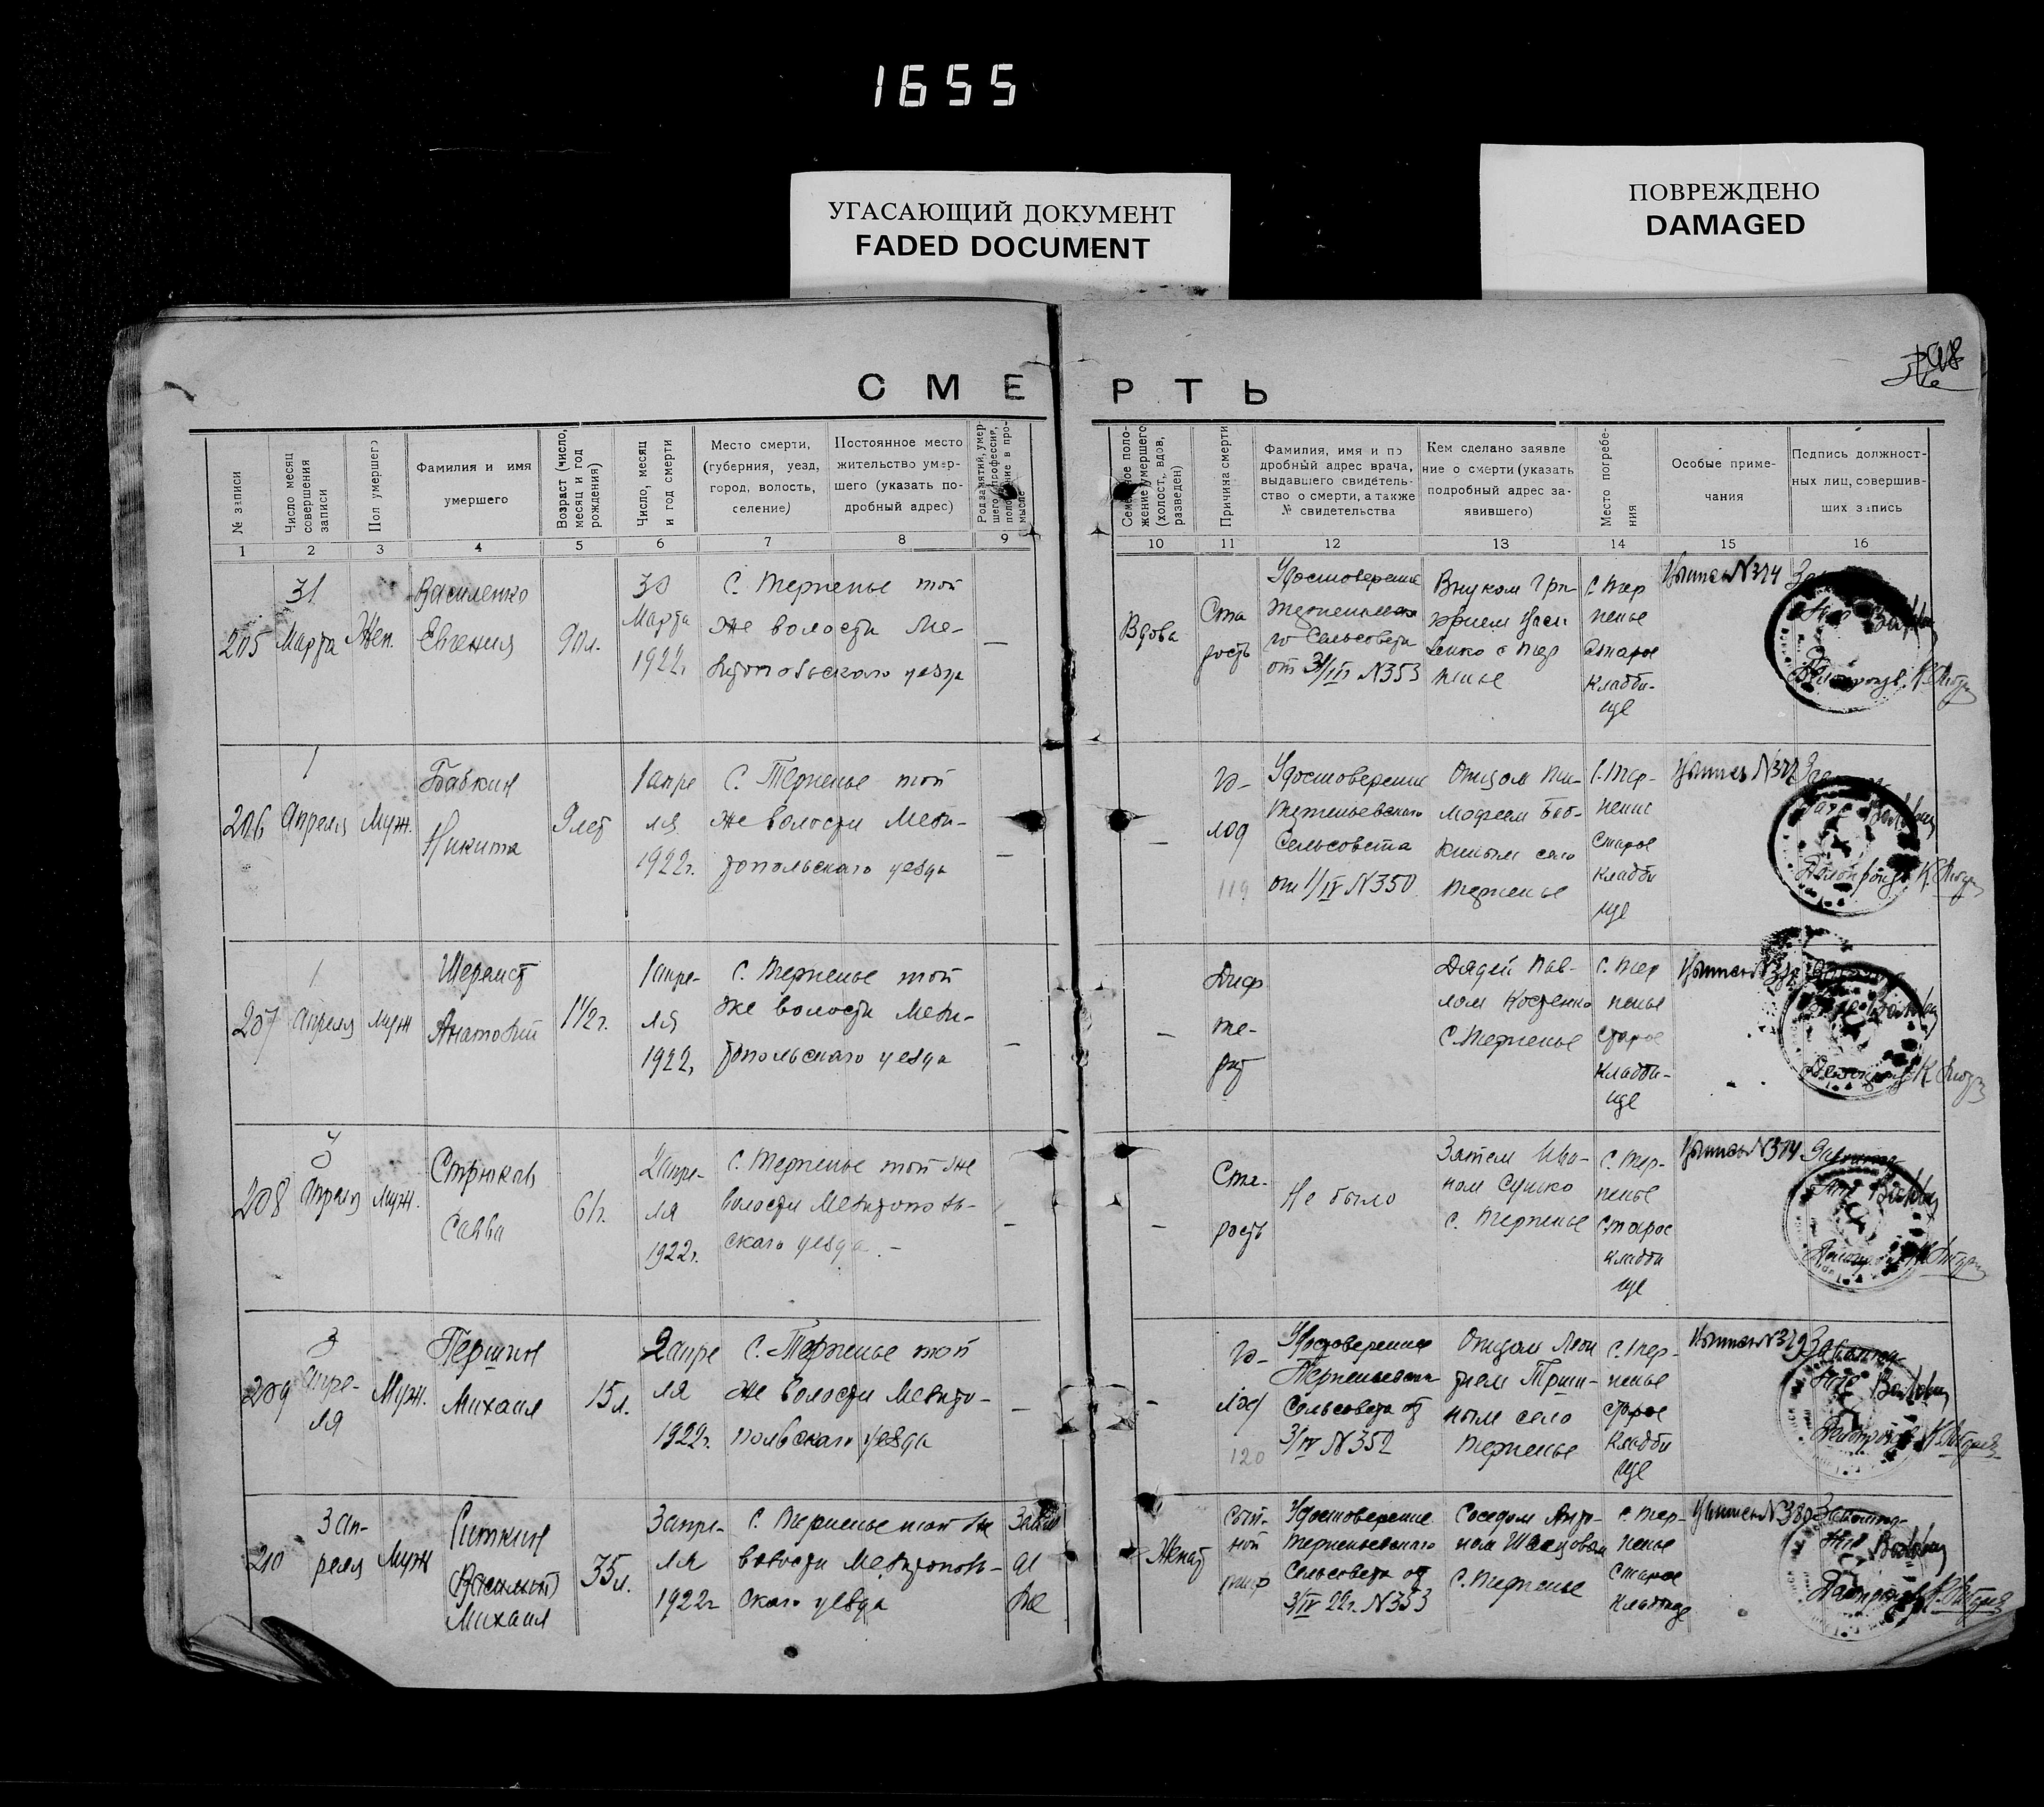 1655
УГАСАЮЩИЙ ДОКУМЕНТ
FADED DOCUMENT
ПОВРЕЖДЕНО
DAMAGED
СМЕРТЬ
№ записи
Число месяц совершения записи
Пол умершего
Фамилия и имя умершего
Возраст (число, месяц и год рождения)
Число, месяц и год смерти
Место смерти, (губерния, уезд, город, волость, селение)
Постоянное место жительство умершего (указать подробный адрес)
Род занятий, умершего (профессия, положение в промысле
Семейное положение умершего (холост, вдов, разведен)
Причина смерти
Фамилия, имя и подробный адрес врача, выдавшего свидетельство о смерти, а также № свидетельства
Кем сделано заявление о смерти (указать подробный адрес заявившего)
Место погребения
Особые примечания
Подпись должностных лиц, совершивших запись
1 2 3 4 5 6 7 8 9 10 11 12 13 14 15 16
205
31
Марта
Жен.
Василенко
Евгения
90л.
30
Марта
1922г.
С. Терпенье той
же волости Ме-
литопольскаго уезда
—
Вдова
Ста
рость
Удостоверение
Сельсовета
N353
Внуком
С. Тер
пенье
Старое
Кладби-
ще
N374
206
1
Апреля
Муж.
Бабкин
Никита
9 лет
1 апре
ля
1922г.
С. Терпенье той
же волости Мели-
топольскаго уезда
—
—
Го-
лод
119
Удостоверение
Терпеньевскаго
Сельсовета
от 1/IV N350
Отцом Ти-
мофеем Баб-
киным село
Терпенье
С. Тер-
пение
Старое
Кладби
ще
207
1
Апреля
Муж
Шерамет
Анатолий
1 1/2 г.
1 апре-
ля
1922,
С. Терпенье той
же волости Мели-
топольскаго уезда
—
—
Диф
те-
рит
Дядей Пав-
лом Костенко
С. Терпенье
С. Тер
пенье
Старое
Кладби-
ще
208
3
Апреля
Муж.
Стрюков
Савва
61г.
2 апре-
ля
1922г.
С. Терпенье той же
волости Мелитополь-
скаго уезда. —
—
—
Ста-
рость
Не было
Зятем Ива-
ном Сушко
С. Терпенье
С. Тер-
пенье
Старое
Кладби
ще
209
3
Апре-
ля
Муж.
Першин
Михаил
15л.
2 апре
ля
1922г.
С. Терпенье той
же волости Мелито-
польскаго уезда
—
—
Го-
лод
120
Удостоверение
Сельсовета от
3/IV N352
Отцом
село
Терпенье
С. Тер-
пенье
Старое
Кладби
ще
N379
210
3 ап-
реля
Муж
Ситкин
Михаил
35л.
3 апре-
ля
1922г
С. Терпенье той же
волости Мелитополь-
скаго уезда
Женат
Сып-
ной
тиф
Удостоверение
Терпеньевскаго
Сельсовета от
3/IV 22г. N353
Соседом Анто-
ном
С. Терпенье
С. Тер-
пенье
Старое
Кладбище
N380